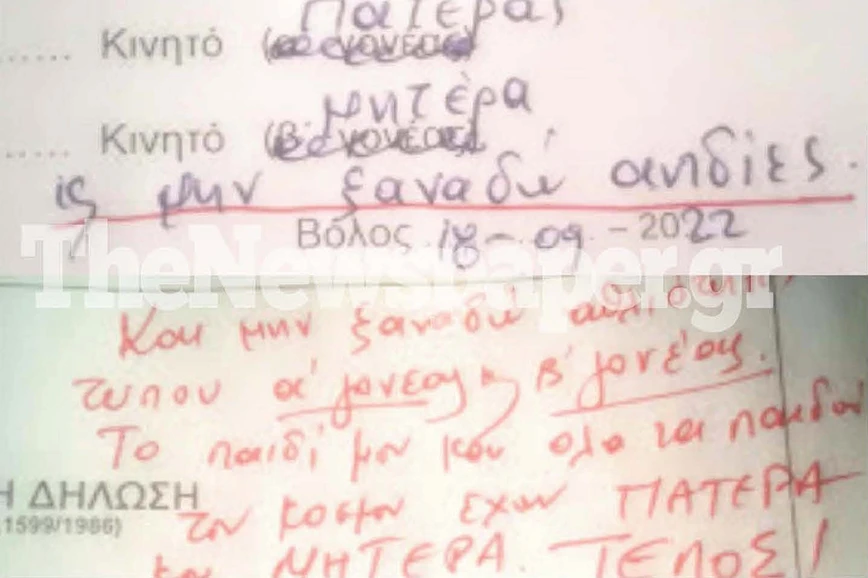 Πατέρας
...... Κινητό (α' γονέας)
μητέρα
..... Κινητό (β' γονέας)
ις μην ξαναδώ αηδίες.
Βόλος 18-09-2022
TheNewspaper.gr
Και μην ξαναδώ αθλιότητες
τύπου α' γονέας κ β' γονέας.
Το παιδί μου και όλα τα παιδιά
Η ΔΗΛΩΣΗ του κόσμου έχουν ΠΑΤΕΡΑ
1599/1986)
και ΜΗΤΕΡΑ. ΤΕΛΟΣ!